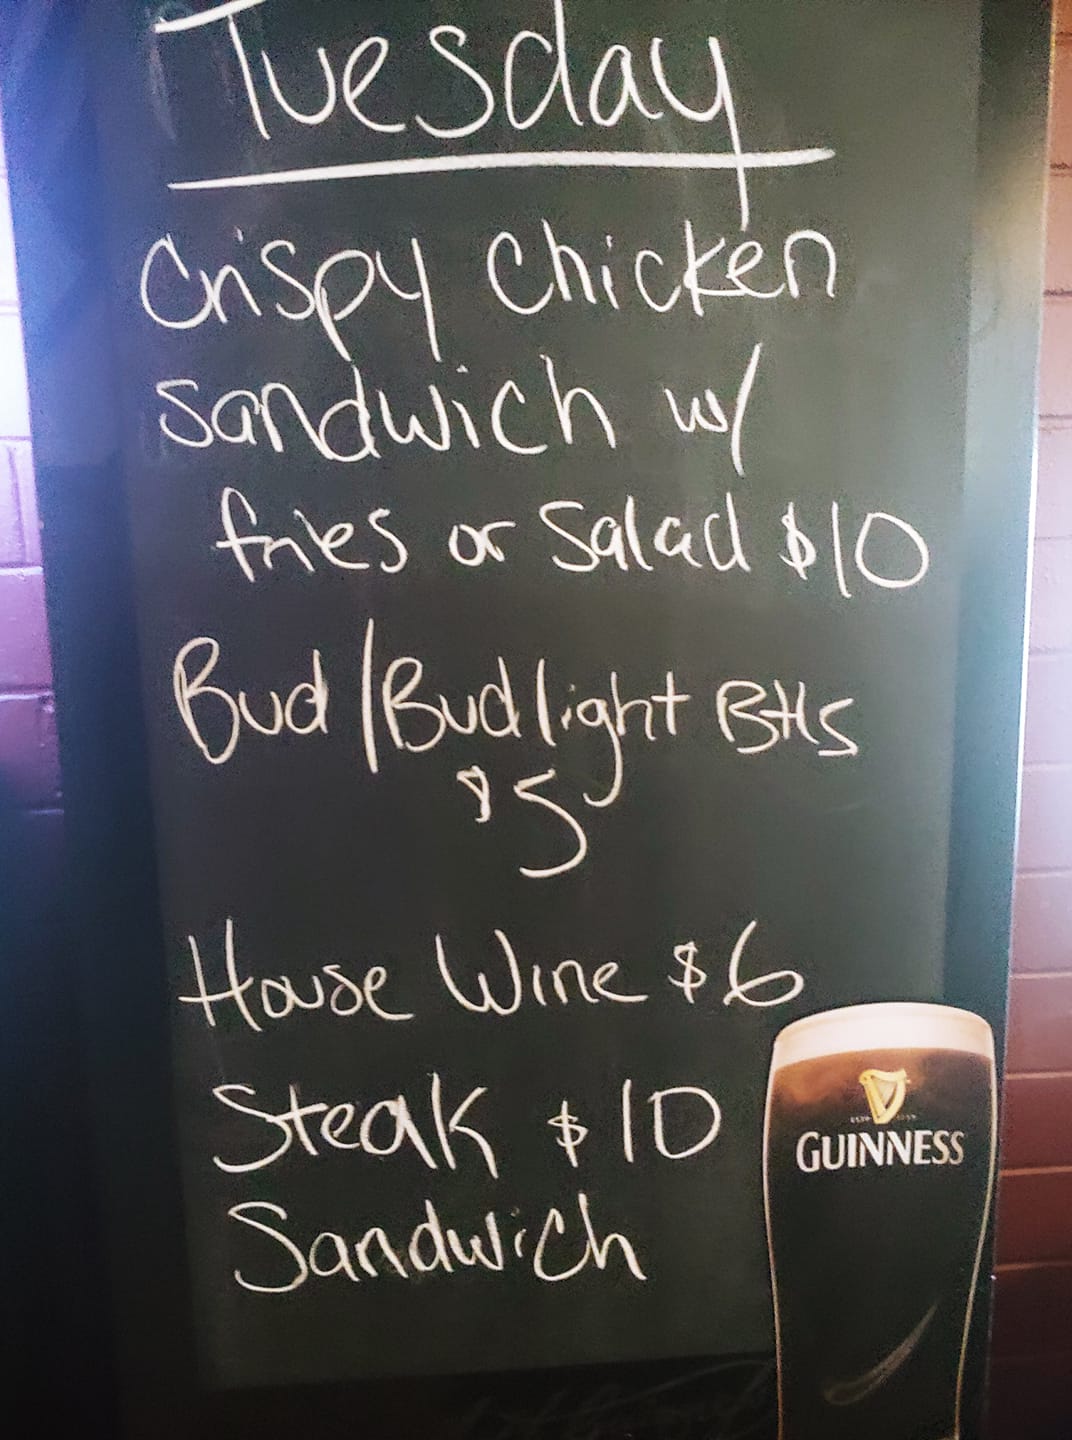 Tuesday
Crispy Chicken
Sandwich w/
fries or Salad $10
Bud/Budlight Btls
$5
House Wine $6
Steak $10
Sandwich
GUINNESS